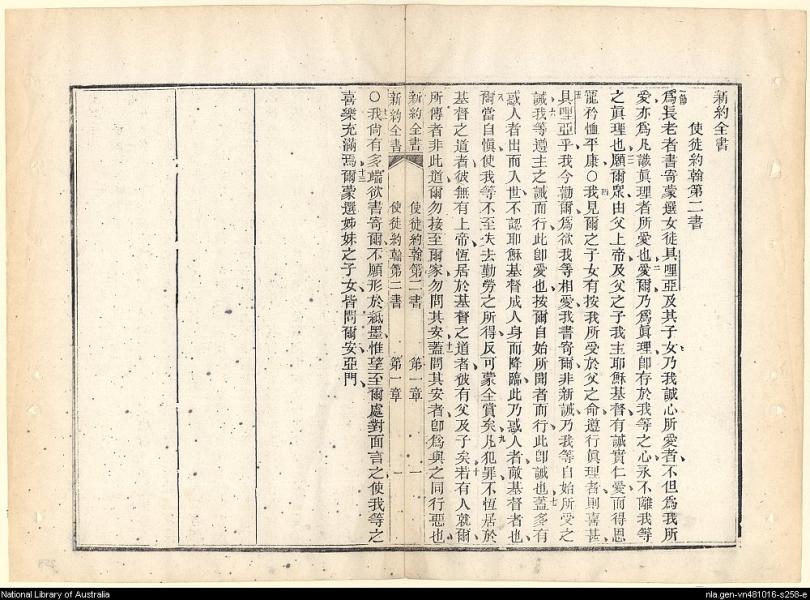 新約全書
使徒約翰第二書
一節爲長老者書寄蒙選女徒具哩亞及其子女乃我誠心所愛者不但爲我所
愛亦爲凡識眞理者所愛也二愛爾乃爲眞理卽存於我等之心永不離我等
之眞理也三願爾眾由父上帝及父之子我主耶穌基督有誠實仁愛而得恩
寵矜恤平康○四我見爾之子女有按我所受於父之命遵行眞理者則喜甚
五具哩亞乎我今勸爾爲欲我等相愛我書寄爾非新誡乃我等自始所受之
誡六我等遵主之誡而行此卽愛也按爾自始所聞者而行此卽誡也七蓋多有
惑人者出而入世不認耶穌基督成人身而降臨此乃惑人者敵基督者也
八爾當自愼使我等不至失去勤勞之所得反可蒙全賞矣九凡犯罪不恆居於
基督之道者彼無有上帝恆居於基督之道者彼有父及子矣十若有人就爾
所傳者非此道爾勿接至爾家勿問其安十一蓋問其安者卽爲與之同行惡也
新約全書 使徒約翰第二書 第一章 一
新約全書 使徒約翰第二書 第一章 一
○十二我尙有多端欲書寄爾不願形於紙墨惟望至爾處對面言之使我等之
喜樂充滿焉十三爾蒙選姊妹之子女皆問爾安亞門
National Library of Australia
nla.gen-vn481016-s258-e